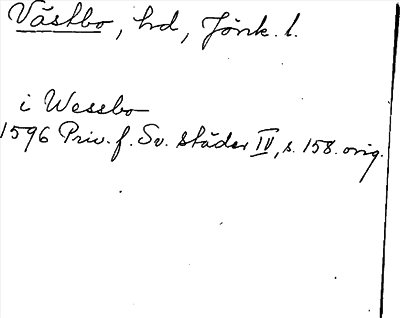 Västbo, hd, Jönk. l.
i Wessbo
1596 Priv. f. Sv. städer IV, s. 158. orig.